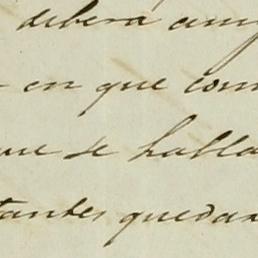 debera cum
en que com
que se halla
tantes quedan